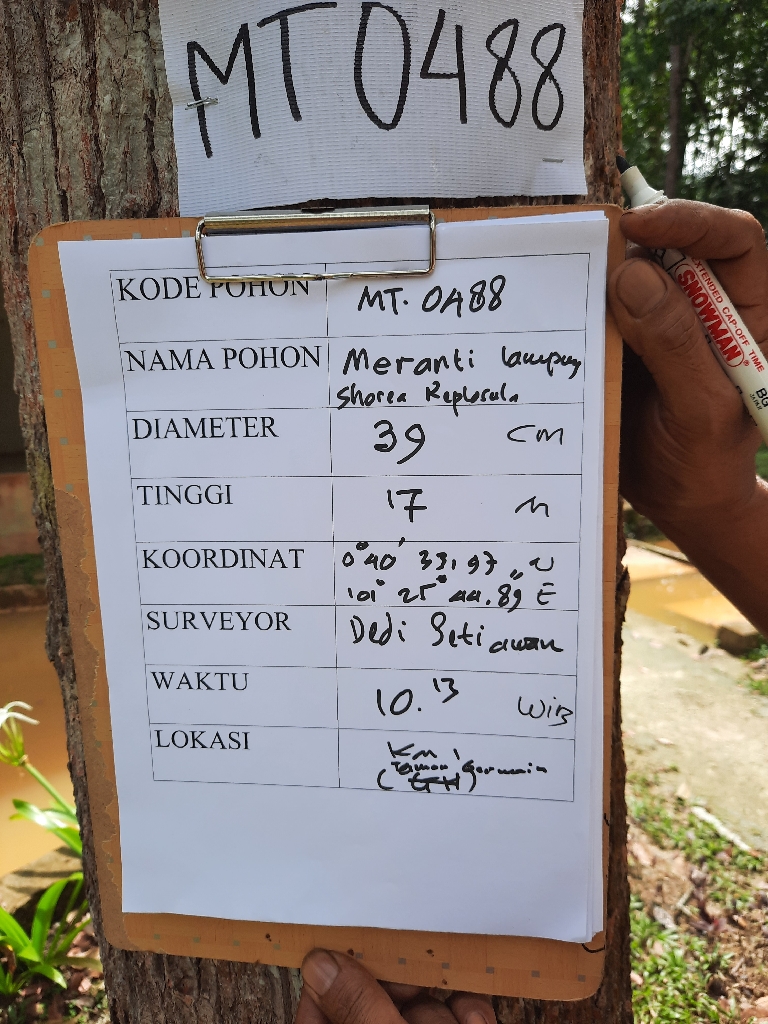 MT0488
KODE POHON MT. 0488
NAMA POHON Meranti lampung
Shorea Replosula
DIAMETER 39 CM
TINGGI 17 M
KOORDINAT 0° 40' 33,97 " N
101° 25° 44.89 " E
SURVEYOR Dedi Setiawan
WAKTU 10.13 WIB
LOKASI KM 1
Taman
(
EXTENDED CAP-OFF TIME
SNOWMAN®
BG